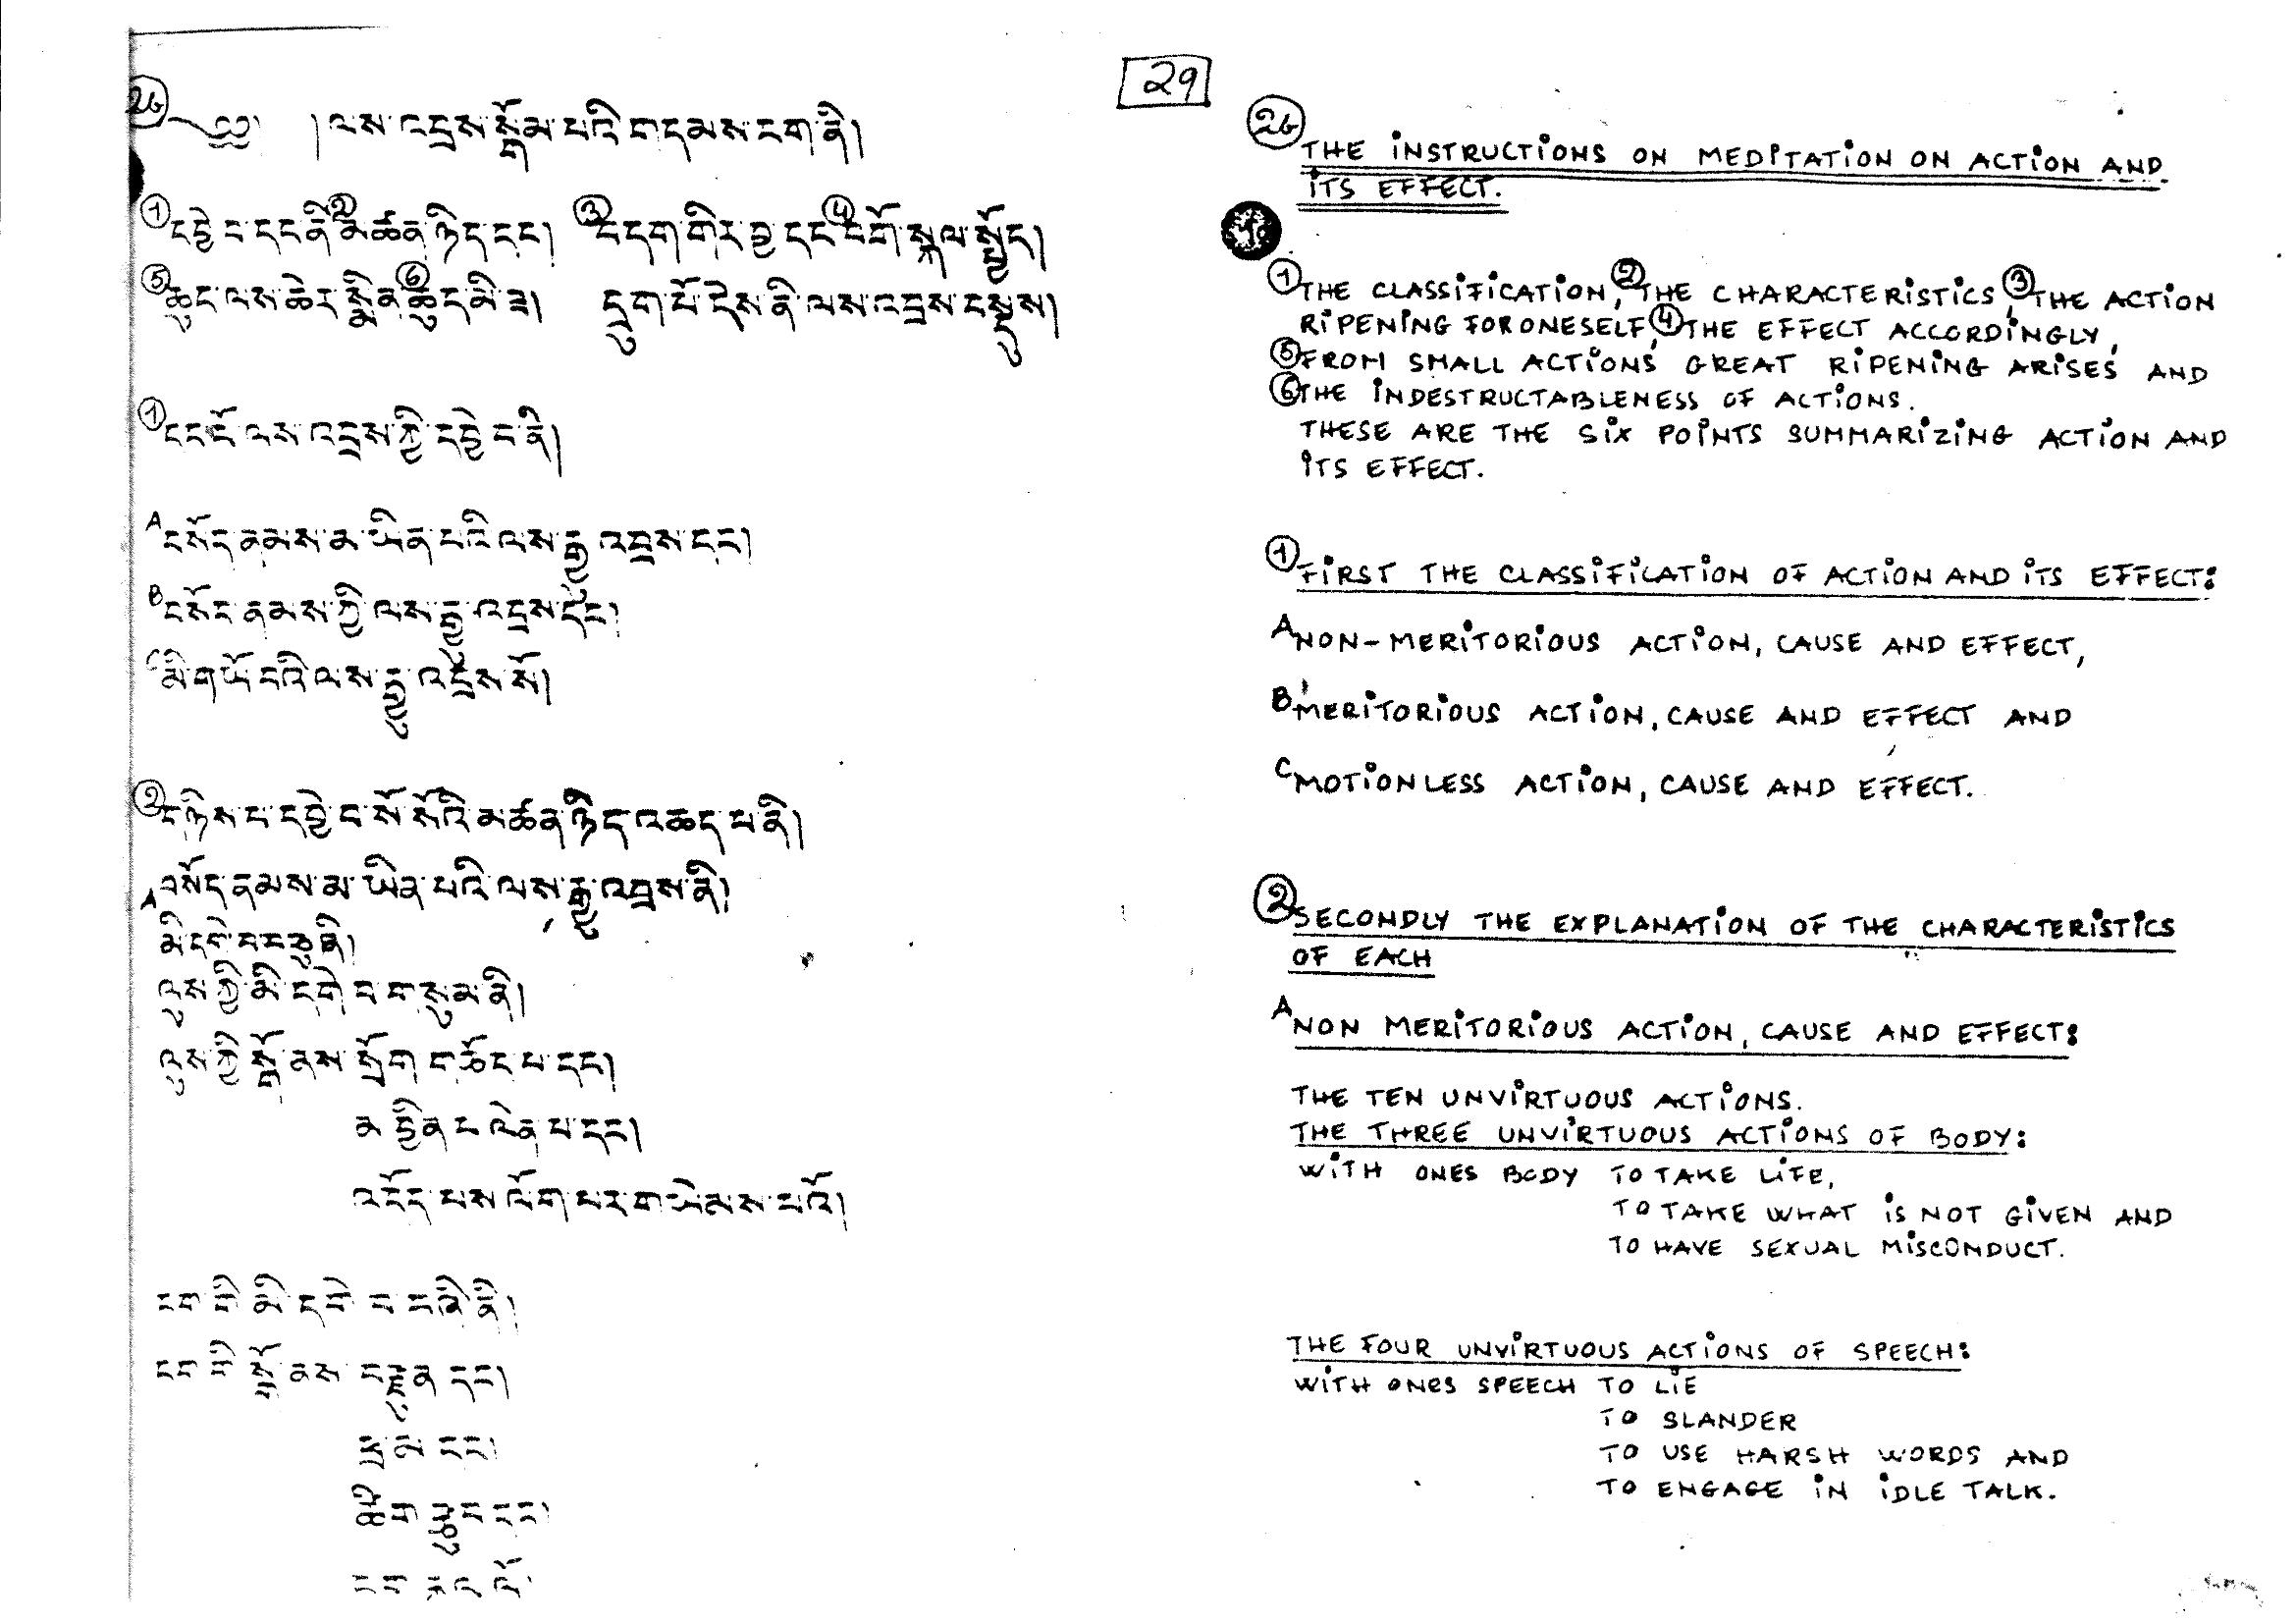 29
26
༄༅། །ལས་འབྲས་སྒོམ་པའི་གདམས་ངག་ནི།
① དབྱེ་བ་དང་ནི་② མཚན་ཉིད་དང་། ③ བདག་གིར་བྱ་དང་④ བགོ་སྐལ་སྤྱོད།
⑤ ཆུང་ལས་ཆེར་སྨིན་⑥ ཆུད་མི་ཟ། དྲུག་པོ་དེས་ནི་ལས་འབྲས་བསྡུས།
① དང་པོ་ལས་འབྲས་ཀྱི་དབྱེ་བ་ནི།
A བསོད་ནམས་མ་ཡིན་པའི་ལས་རྒྱུ་འབྲས་དང་།
B བསོད་ནམས་ཀྱི་ལས་རྒྱུ་འབྲས་དང་།
C མི་གཡོ་བའི་ལས་རྒྱུ་འབྲས་སོ།
② གཉིས་པ་དབྱེ་བ་སོ་སོའི་མཚན་ཉིད་འཆད་པ་ནི།
A བསོད་ནམས་མ་ཡིན་པའི་ལས་རྒྱུ་འབྲས་ནི།
མི་དགེ་བ་བཅུ་ནི།
ལུས་ཀྱི་མི་དགེ་བ་གསུམ་ནི།
ལུས་ཀྱི་སྒོ་ནས་སྲོག་གཅོད་པ་དང་།
མ་བྱིན་པ་ལེན་པ་དང་།
འདོད་པས་ལོག་པར་གཡེམས་པའོ།
ངག་གི་མི་དགེ་བ་བཞི་ནི།
ངག་གི་སྒོ་ནས་བརྫུན་དང་།
ཕྲ་མ་དང་།
ཚིག་རྩུབ་དང་།
26
THE INSTRUCTIONS ON MEDITATION ON ACTION AND
ITS EFFECT.
① THE CLASSIFICATION, ② THE CHARACTERISTICS, ③ THE ACTION
RIPENING FOR ONESELF, ④ THE EFFECT ACCORDINGLY,
⑤ FROM SMALL ACTIONS GREAT RIPENING ARISES AND
⑥ THE INDESTRUCTABLENESS OF ACTIONS.
THESE ARE THE SIX POINTS SUMMARIZING ACTION AND
ITS EFFECT.
① FIRST THE CLASSIFICATION OF ACTION AND ITS EFFECT:
A NON-MERITORIOUS ACTION, CAUSE AND EFFECT,
B MERITORIOUS ACTION, CAUSE AND EFFECT AND
C MOTIONLESS ACTION, CAUSE AND EFFECT.
② SECONDLY THE EXPLANATION OF THE CHARACTERISTICS
OF EACH
A NON MERITORIOUS ACTION, CAUSE AND EFFECT:
THE TEN UNVIRTUOUS ACTIONS.
THE THREE UNVIRTUOUS ACTIONS OF BODY:
WITH ONES BODY TO TAKE LIFE,
TO TAKE WHAT IS NOT GIVEN AND
TO HAVE SEXUAL MISCONDUCT.
THE FOUR UNVIRTUOUS ACTIONS OF SPEECH:
WITH ONES SPEECH TO LIE
TO SLANDER
TO USE HARSH WORDS AND
TO ENGAGE IN IDLE TALK.